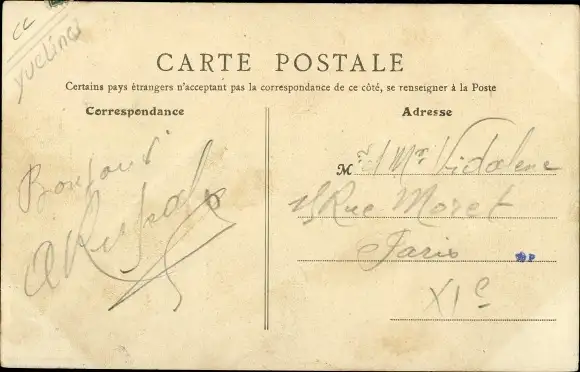 cc
yvelines
CARTE POSTALE
Certains pays étrangers n'acceptant pas la correspondance de ce côté, se renseigner à la Poste
Correspondance
Adresse
Bonjour
M et Mme Vidalenc
Rue Moret
Paris
XIe